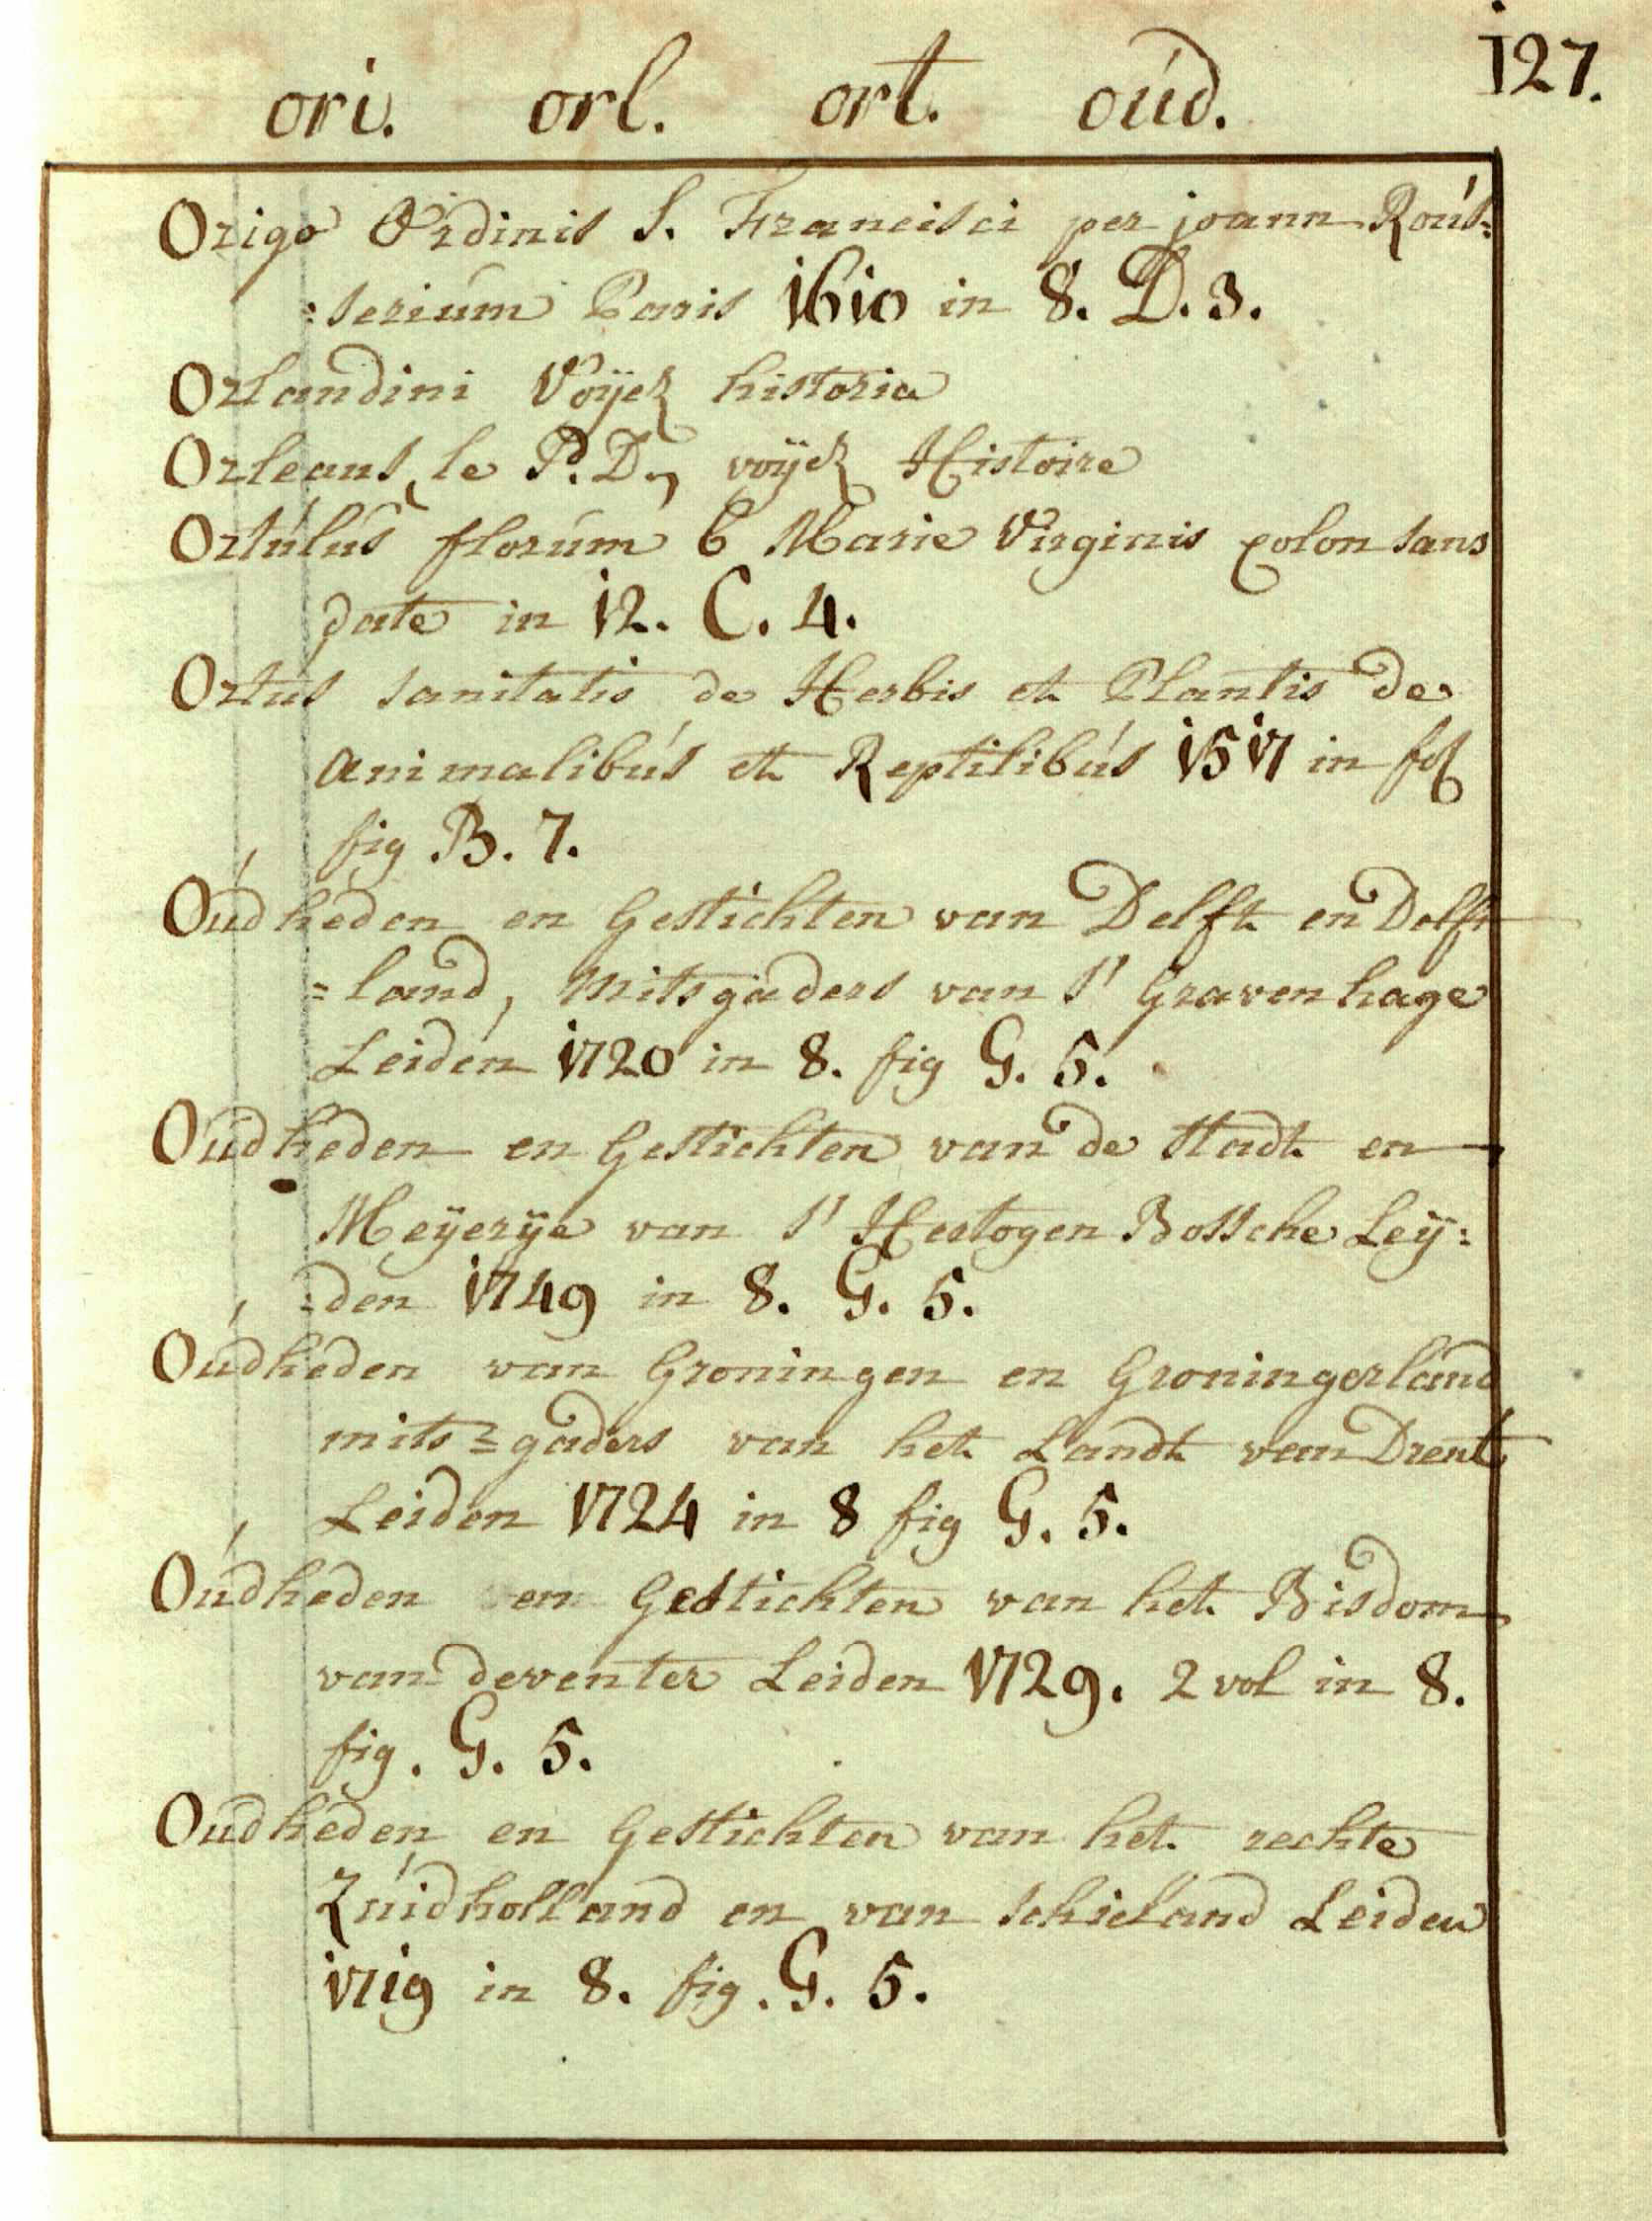 127.
ori. orl. ort. oúd.
Origo Ordinis S. Francisci per joann Roús=
=serium Paris 1610 in 8. D. 3.
Orlandini Voÿez historia
Orleans, le P. D., voÿez Histoire
Ortúlús florúm b Marie Virginis colon sans
date in 12. C. 4.
Ortus sanitatis de Herbis et Plantis de
animalibús et Reptilibús 1517 in fol
fig B. 7.
Oúdheden en Gestichten van Delft en Delft
=land, mitsgaders van S' Gravenhage
Leiden 1720 in 8. fig G. 5.
Oúdheden en Gestichten van de Stadt en
Meÿerÿe van S' Hertogen Bossche Leÿ=
=den 1749 in 8. G. 5.
Oúdheden van Groningen en Groningerland
mits=gaders van het Landt van Drent
Leiden 1724 in 8 fig G. 5.
Oúdheden en Gestichten van het Bisdom
van deventer Leiden 1729. 2 vol in 8.
fig. G. 5.
Oudheden en Gestichten van het rechte
Zúidholland en van Schieland Leiden
1719 in 8. fig. G. 5.